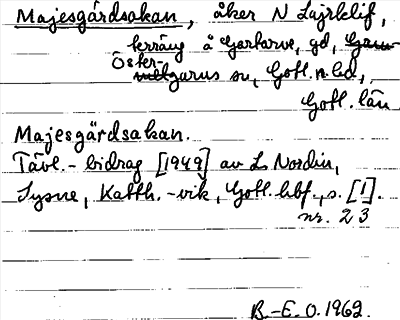 Majesgärdsakan, åker N Lajrklif,
terräng å Gartarve, gd,
Öster-
garns sn, Gotl. n. hd,
Gotl. län
Majesgärdsakan.
Tävl.-bidrag [1949] av L. Nordin,
Sysne, Katth.-vik, Gotl. hbf., s. [1].
nr. 23
B.-E. O. 1962.